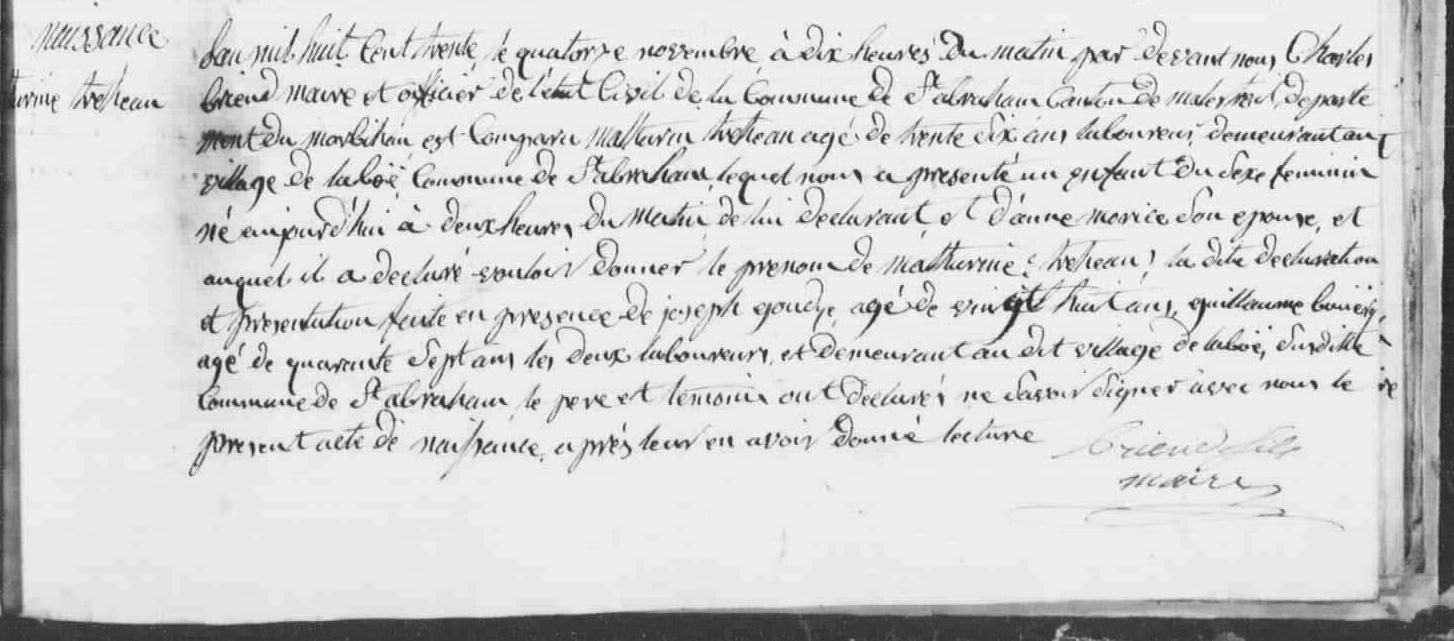 naissance
turine treheau
Lan mil huit Cent trente le quatorze novembre à dix heures Du matin par devant nous Charles
briend maire et officier de l'état Civil de la Commune de St abraham Canton de malestroit, departe
ment du morbihan est Comparu mathurin treheau agé de trente six ans laboureur, demeurant au
village de laboë Commune de St abraham, lequel nous a presenté un enfant du sexe feminin
né aujourd'hui à deux heures du matin, de lui declarant, et d'anne morice son epouse, et
auquel il a declaré vouloir donner le prenom de mathurine treheau, la dite declaration
et presentation faite en presence de joseph goudye, agé de vingt huit ans, guillaume
agé de quarante sept ans les deux laboureurs, et demeurant au dit village de laboë, susditte
Commune de St abraham, le pere et temoins ont declarés ne savoir signer avec nous le
present acte de naissance, après leur en avoir donné lecture
briend fils
maire